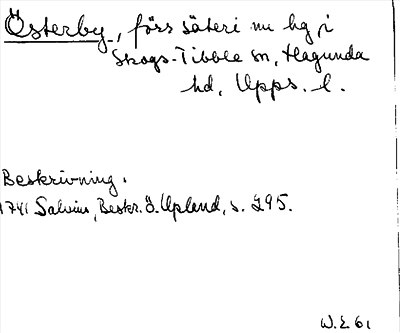 Österby, förr säteri nu hg i
Skogs-Tibble sn, Hagunda
hd, Upps. l.
Beskrivning.
1741 Salvius, Beskr. ö. Upland, s. 295.
W.E 61